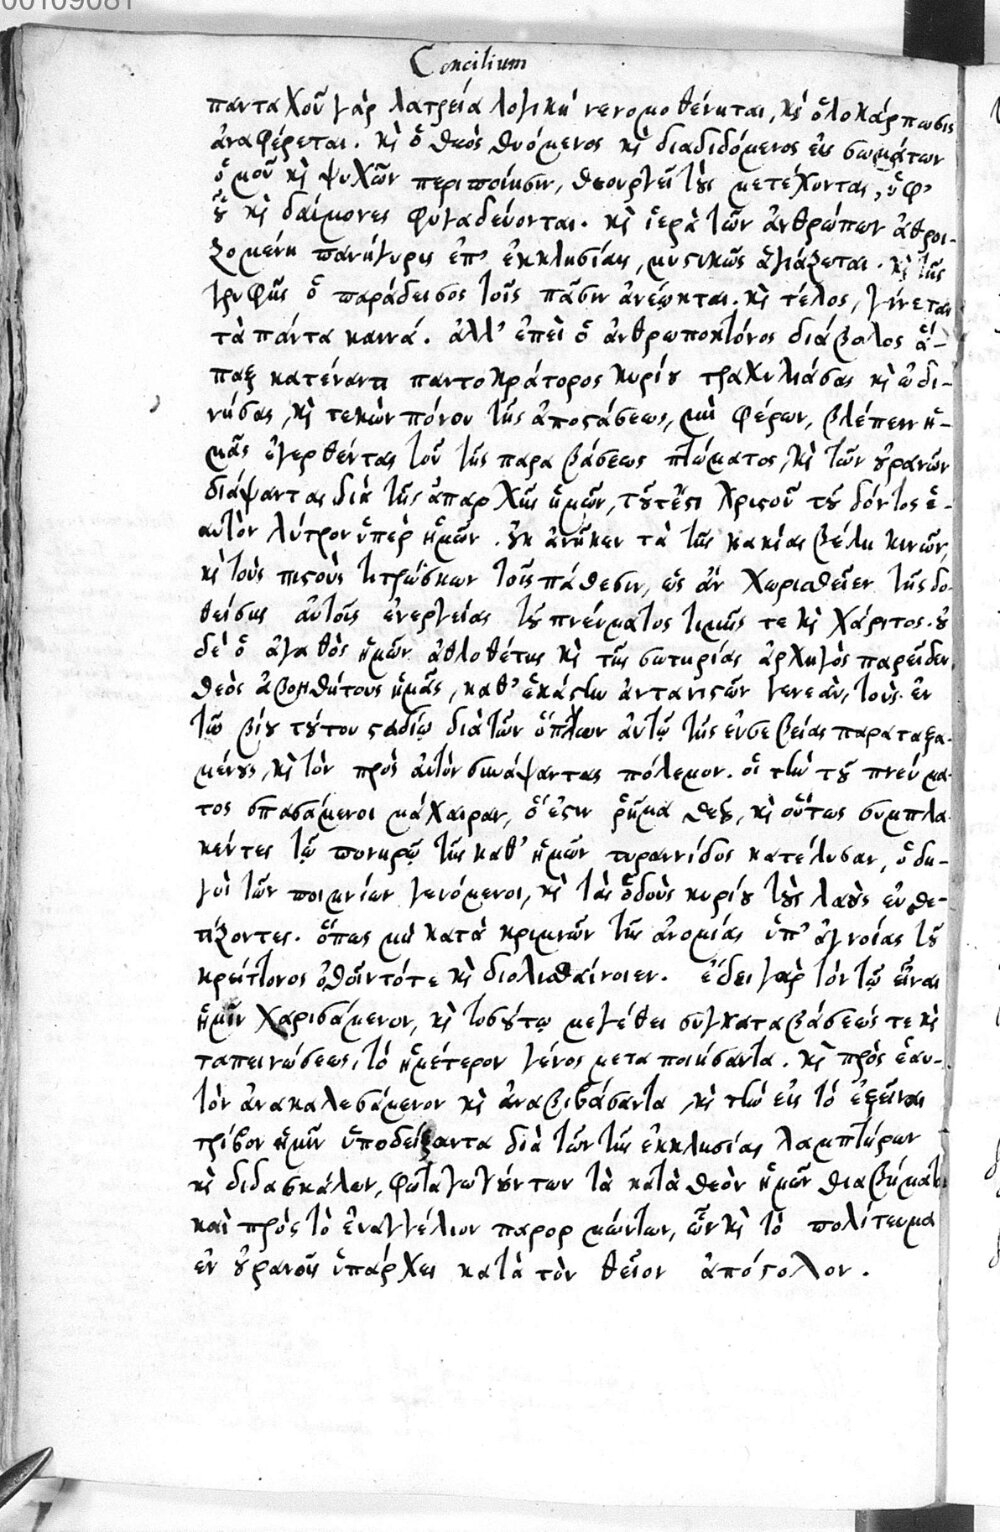 00109081
Concilium
πανταχοῦ γὰρ λατρεία λογικὴ νενομοθέτηται, κὶ ὁλοκάρπωσις
ἀναφέρεται. κὶ ὁ θεὸς θυόμενος κὶ διαδιδόμενος εἰς σωμάτων
ὁμοῦ κὶ ψυχῶν περιποίησιν, θεουργεῖ τοὺς μετέχοντας, ὑφ'
οὗ κὶ δαίμονες φυγαδεύονται. κὶ ἱερὰ τῶν ἀνθρώπων ἀθροι-
ζομένη πανήγυρις ἐπ' ἐκκλησίαις, μυστικῶς ἁγιάζεται. κὶ τῆς
τρυφῆς ὁ παράδεισος τοῖς πᾶσιν ἀνέῳκται. κὶ τέλος, γίνεται
τὰ πάντα καινά. ἀλλ' ἐπεὶ ὁ ἀνθρωποκτόνος διάβολος ἅ-
παξ κατέναντι παντοκράτορος κυρίου τραχηλιάσας κὶ ὠδι-
νήσας, κὶ τεκὼν πόνον τῆς ἀποστάσεως, μὴ φέρων, βλέπειν ἡ-
μᾶς ἐγερθέντας τοῦ τῆς παραβάσεως πτώματος, κὶ τῶν οὐρανῶν
διάψαντας διὰ τῆς ἀπαρχῆς ἡμῶν, τούτἔστι χριστοῦ τοῦ δόντος ἑ-
αυτὸν λύτρον ὑπὲρ ἡμῶν. οὐκ ἀνῆκεν τὰ τῆς κακίας βέλη κινῶν,
κὶ τοὺς πιστοὺς τιτρώσκων τοῖς πάθεσιν, ὡς ἂν χωρισθεῖεν τῆς δο-
θείσης αὐτοῖς ἐνεργείας τοῦ πνεύματος τιμῆς τε κὶ χάριτος. οὐ
δὲ ὁ ἀγαθὸς ἡμῶν ἀθλοθέτης κὶ τῆς σωτηρίας ἀρχηγὸς παρεῖδεν
θεὸς ἀβοηθήτους ἡμᾶς, καθ' ἑκάστην ἀντανιστῶν γενεὰν, τοὺς ἐν
τῷ βίου τούτου σταδίῳ διὰ τῶν ὅπλων αὐτῷ τῆς εὐσεβείας παραταξα-
μένους, κὶ τὸν πρὸς αὐτὸν συνάψαντας πόλεμον. οἳ τὴν τοῦ πνεύμα-
τος σπασάμενοι μάχαιραν, ὅ ἐστιν ῥῆμα θεοῦ, κὶ οὕτως συμπλα-
κέντες τῷ πονηρῷ τῆς καθ' ἡμῶν τυραννίδος κατέλυσαν, ὁδη-
γοὶ τῶν ποιμνίων γενόμενοι, κὶ τὰς ὁδοὺς κυρίου τοὺς λαοὺς εὐθε-
τίζοντες. ὅπως μὴ κατὰ κρημνῶν τῆς ἀνομίας ὑπ' ἀγνοίας τοῦ
κρείττονος ὠθοῖντότε κὶ διολισθαίνοιεν. ἔδει γὰρ τὸν τῷ εἶναι
ἡμῖν χαρισάμενον, κὶ τοσούτῳ μεγέθει συγκαταβάσεώς τε κὶ
ταπεινώσεως, τὸ ἡμέτερον γένος μεταποιήσαντα. κὶ πρὸς ἑαυ-
τὸν ἀνακαλεσάμενον κὶ ἀναβιβάσαντα, κὶ τὴν εἰς τὸ ἐξεῖναι
τρίβον ἡμῖν ὑποδείξαντα διὰ τῶν τῆς ἐκκλησίας λαμπτήρων
κὶ διδασκάλων, φωταγωγούντων τὰ κατὰ θεὸν ἡμῶν διαβήματα
καὶ πρὸς τὸ εὐαγγέλιον παρορμώντων, ὧν κὶ τὸ πολίτευμα
ἐν οὐρανοῖς ὑπάρχει κατὰ τὸν θεῖον ἀπόστολον.